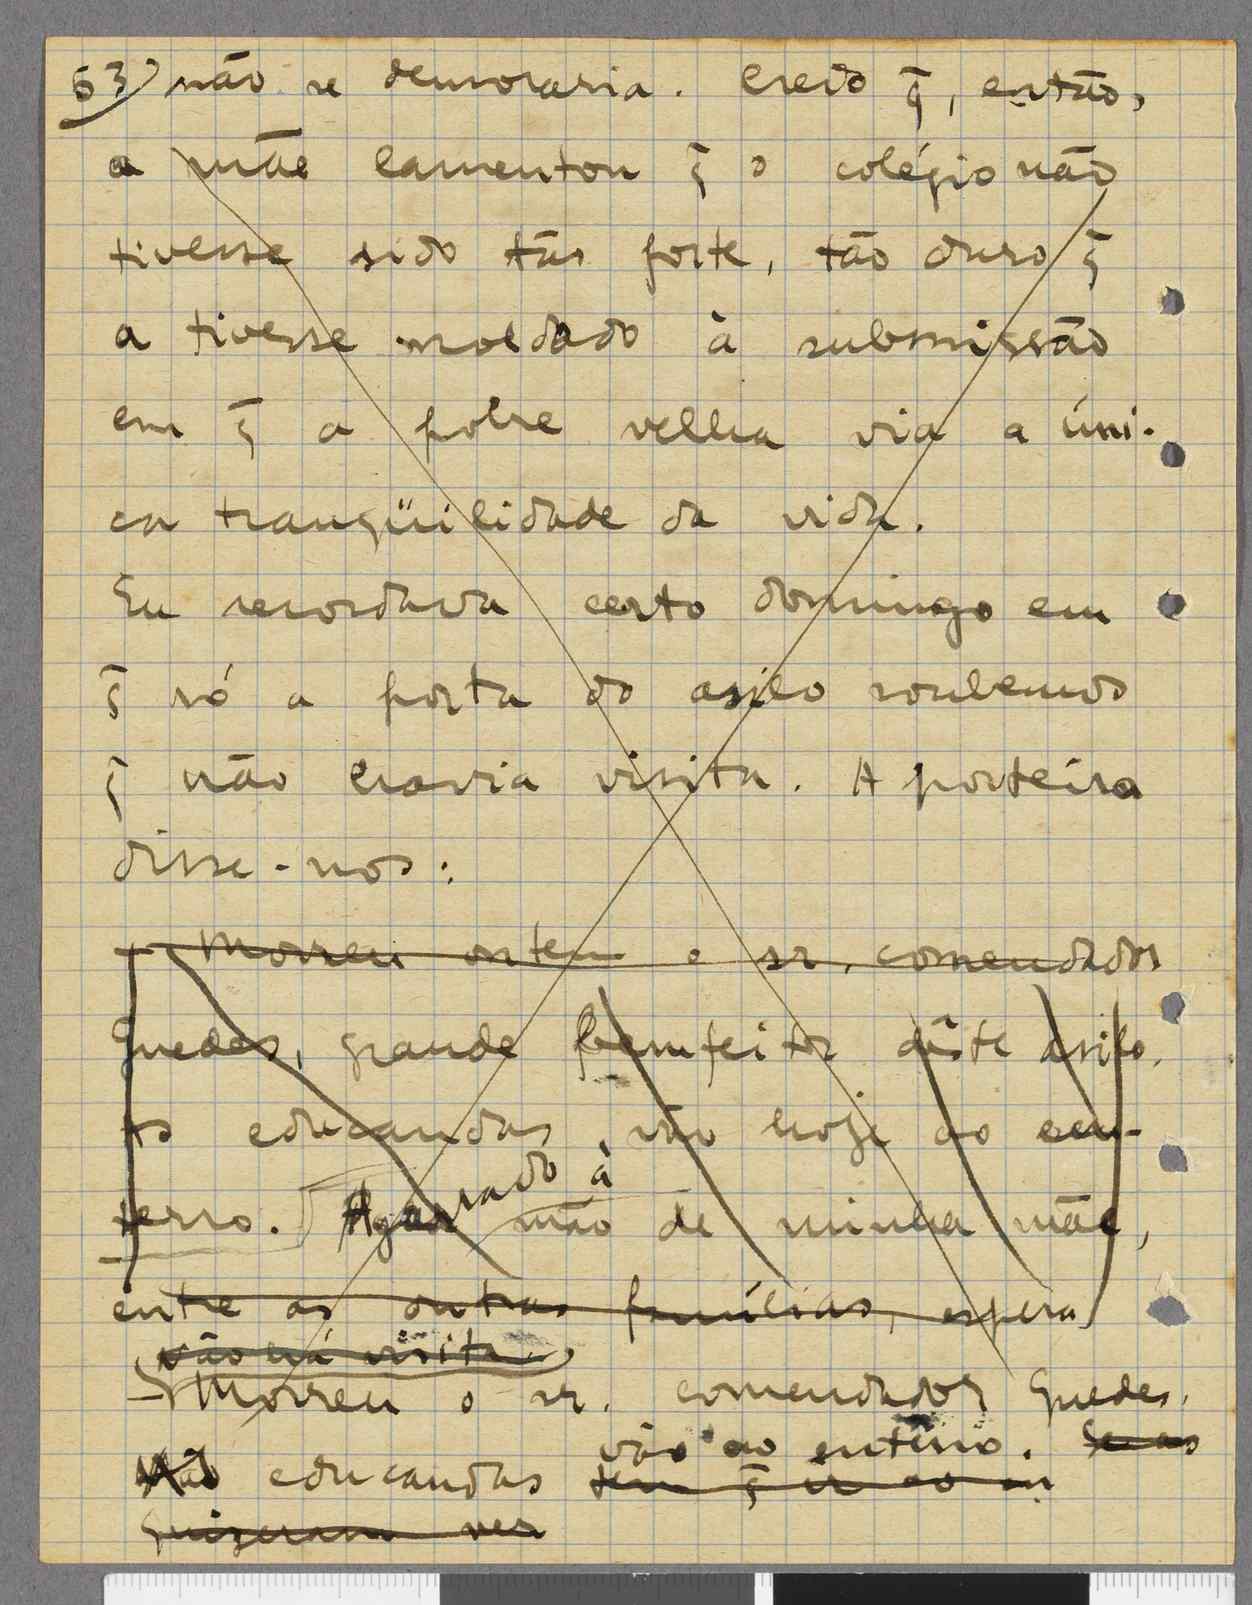 53) não se demoraria. Creio q̄, então,
a mãe lamentou q̄ o colégio não
tivesse sido tão forte, tão duro q̄
a tivesse moldado à submissão
em q̄ a pobre velha via a úni-
ca tranqüilidade da vida.
Eu recordava certo domingo em
q̄ só a porta do asilo soubemos
q̄ não havia visita. A porteira
disse-nos:
— Morreu ontem o sr. comendador
Guedes, grande bemfeitor dêste asilo.
As educandas vão hoje ao en-
terro. Agarrado à
mão de minha mãe,
entre as outras famílias, espera
não há visita.
— Morreu o sr. comendador Guedes.
vão ao enterro. Se as
educandas tem q̄ ir ao en
quizeram ver